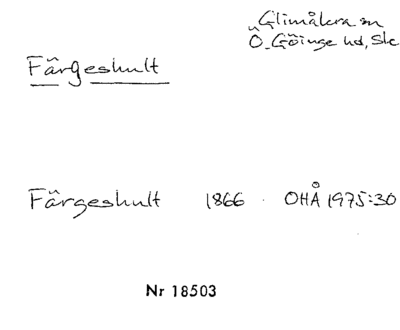 Glimåkra sn
Ö. Göinge hd, Sk
Färgeshult
Färgeshult 1866 OHÅ 1975:30
Nr 18503